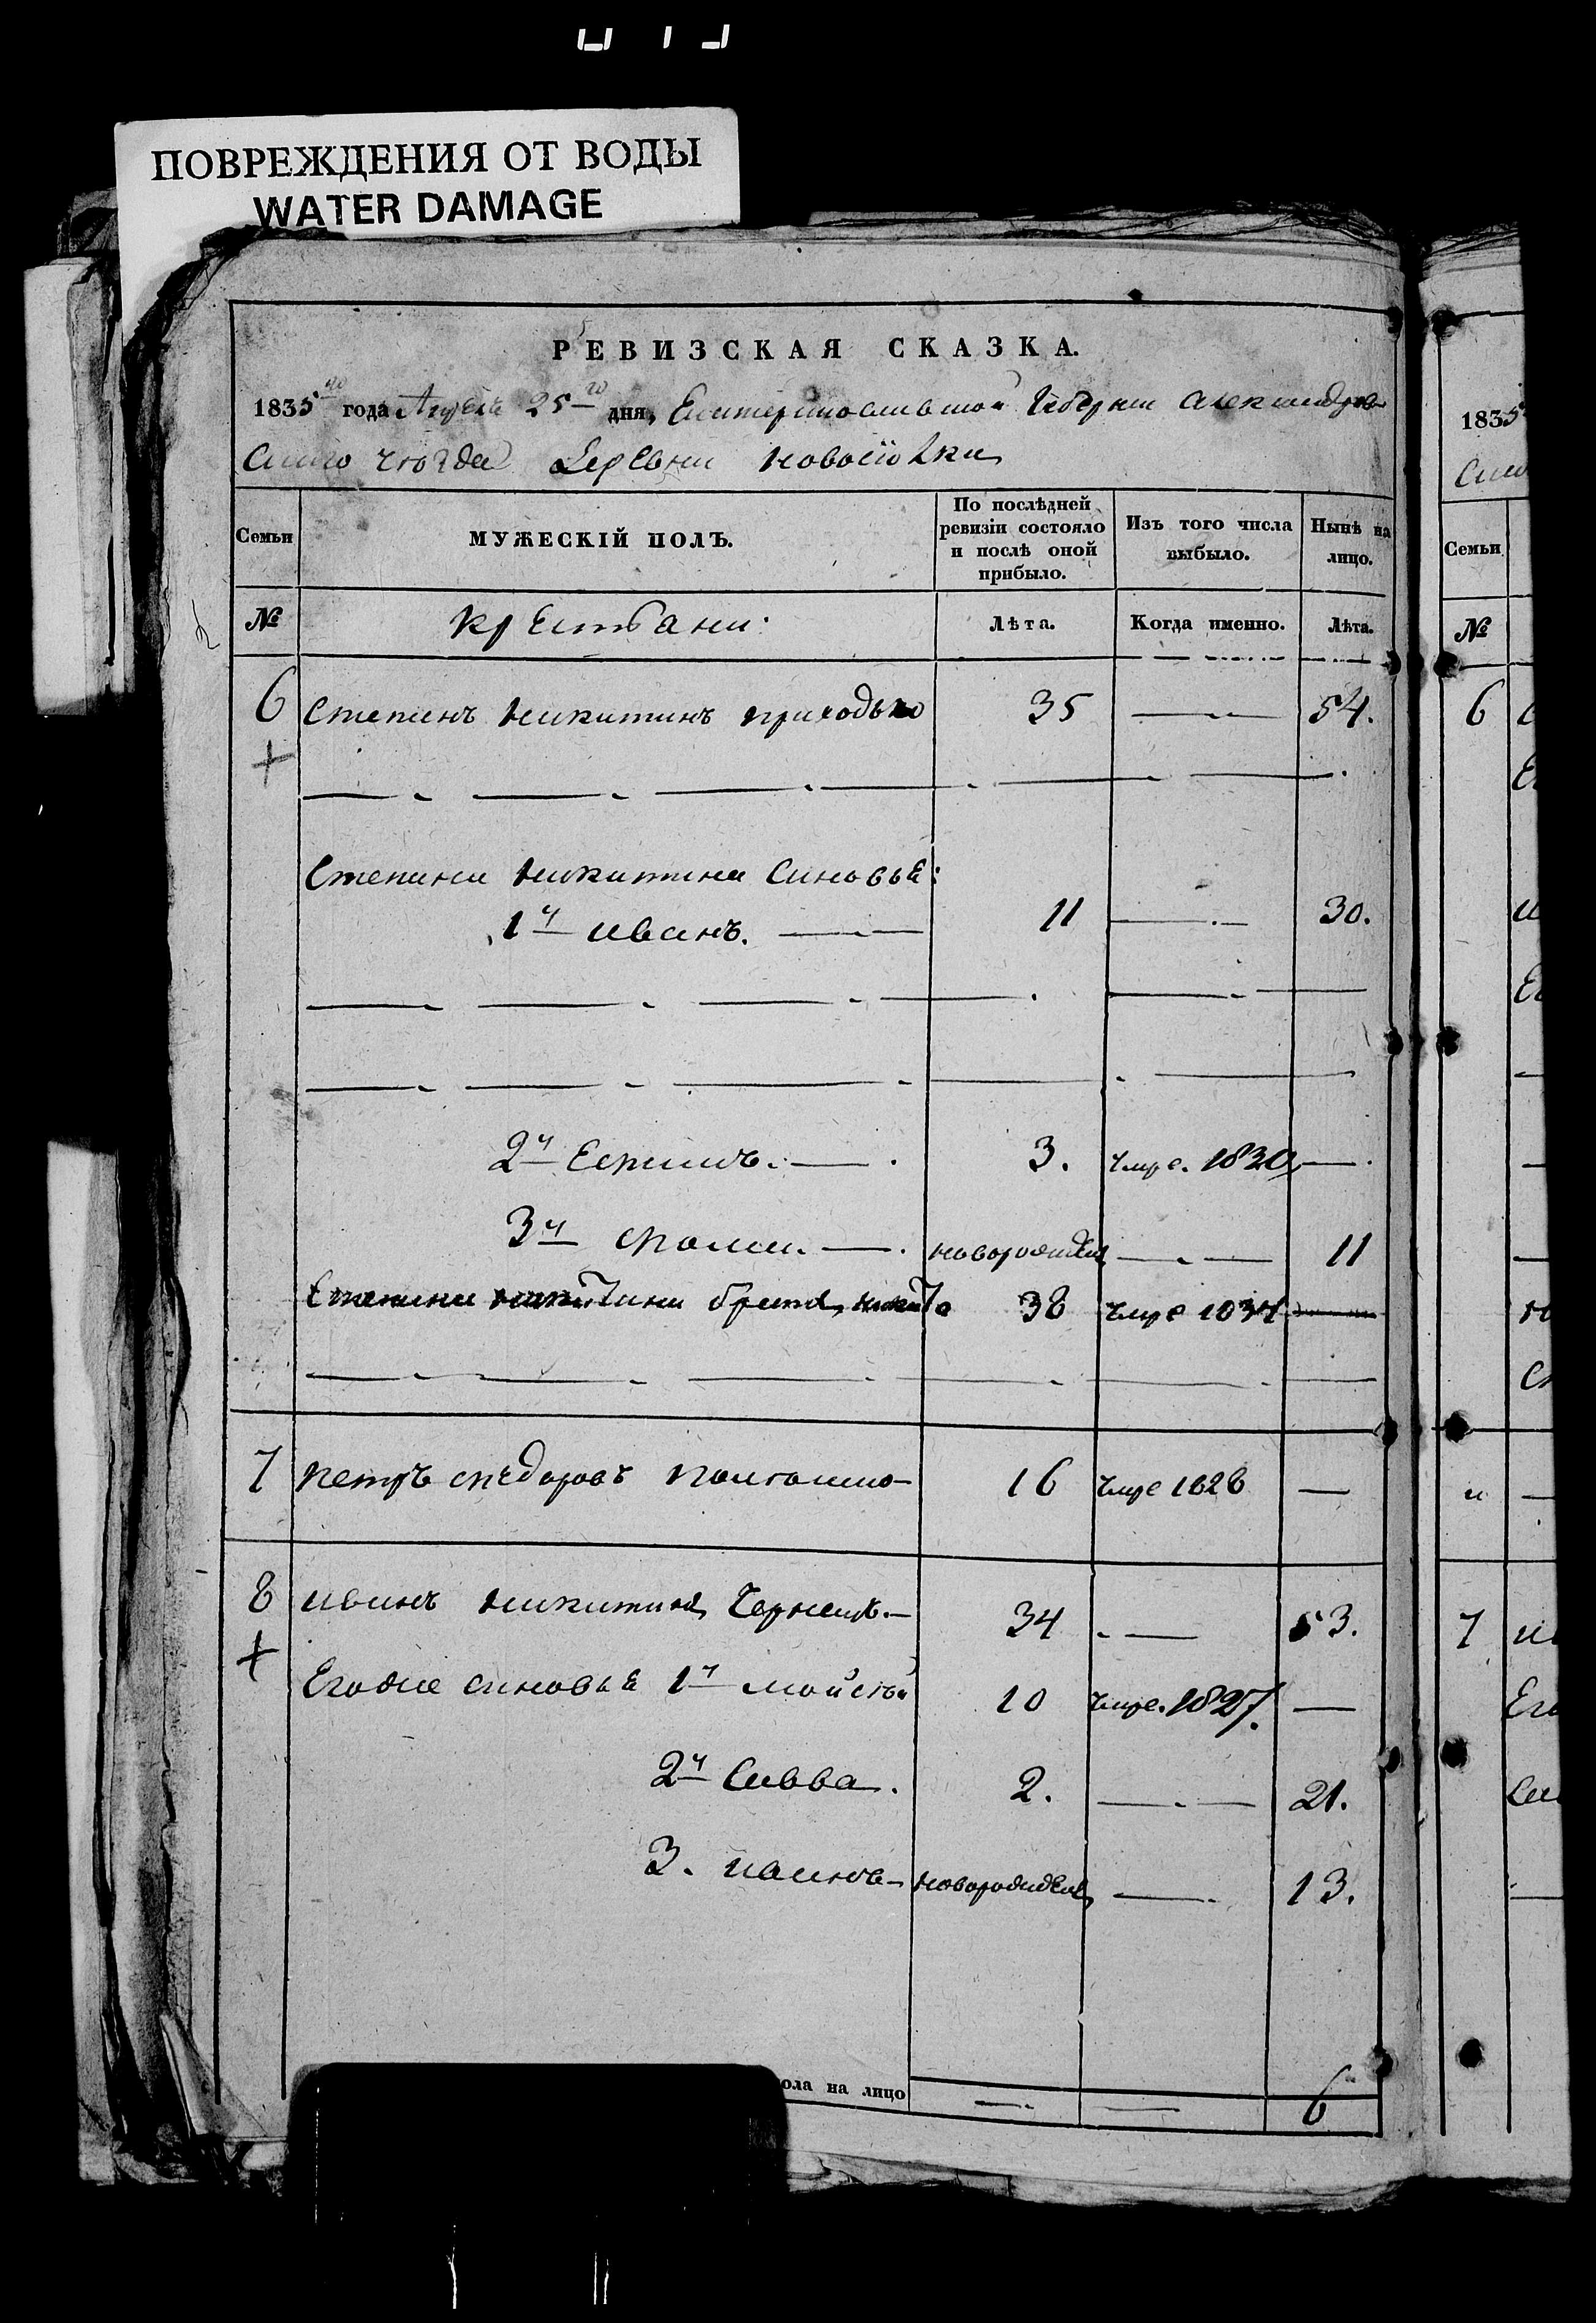 ПОВРЕЖДЕНИЯ ОТ ВОДЫ
WATER DAMAGE
РЕВИЗСКАЯ СКАЗКА.
1835го года Апреля 25го дня, Екатеринославской Губернии Александров
скаго уюзда Деревни Новосіолки
Семьи
МУЖЕСКІЙ ПОЛЪ.
По послѣдней ревизіи состояло и послѣ оной прибыло.
Изъ того числа выбыло.
Нынѣ на лицо.
№ крестьани: Лѣта. Когда именно. Лѣта.
6 Степанъ Никитинъ приходько 35 54.
Степана Никитина синовья:
1й иванъ. 11 30.
2й 3. умре. 1830
3й новорожден 11
Степана Никитина брат Никита 38 умре 1834
7 петръ 16 умре 1828
8 иванъ Никитин 34 53.
Егоже синовья 1й мойсѣй 10 умре. 1827.
2й Савва. 2. 21.
3. иванъ новорожден 13.
ола на лицо 6
1835
Семьи
№
6
7